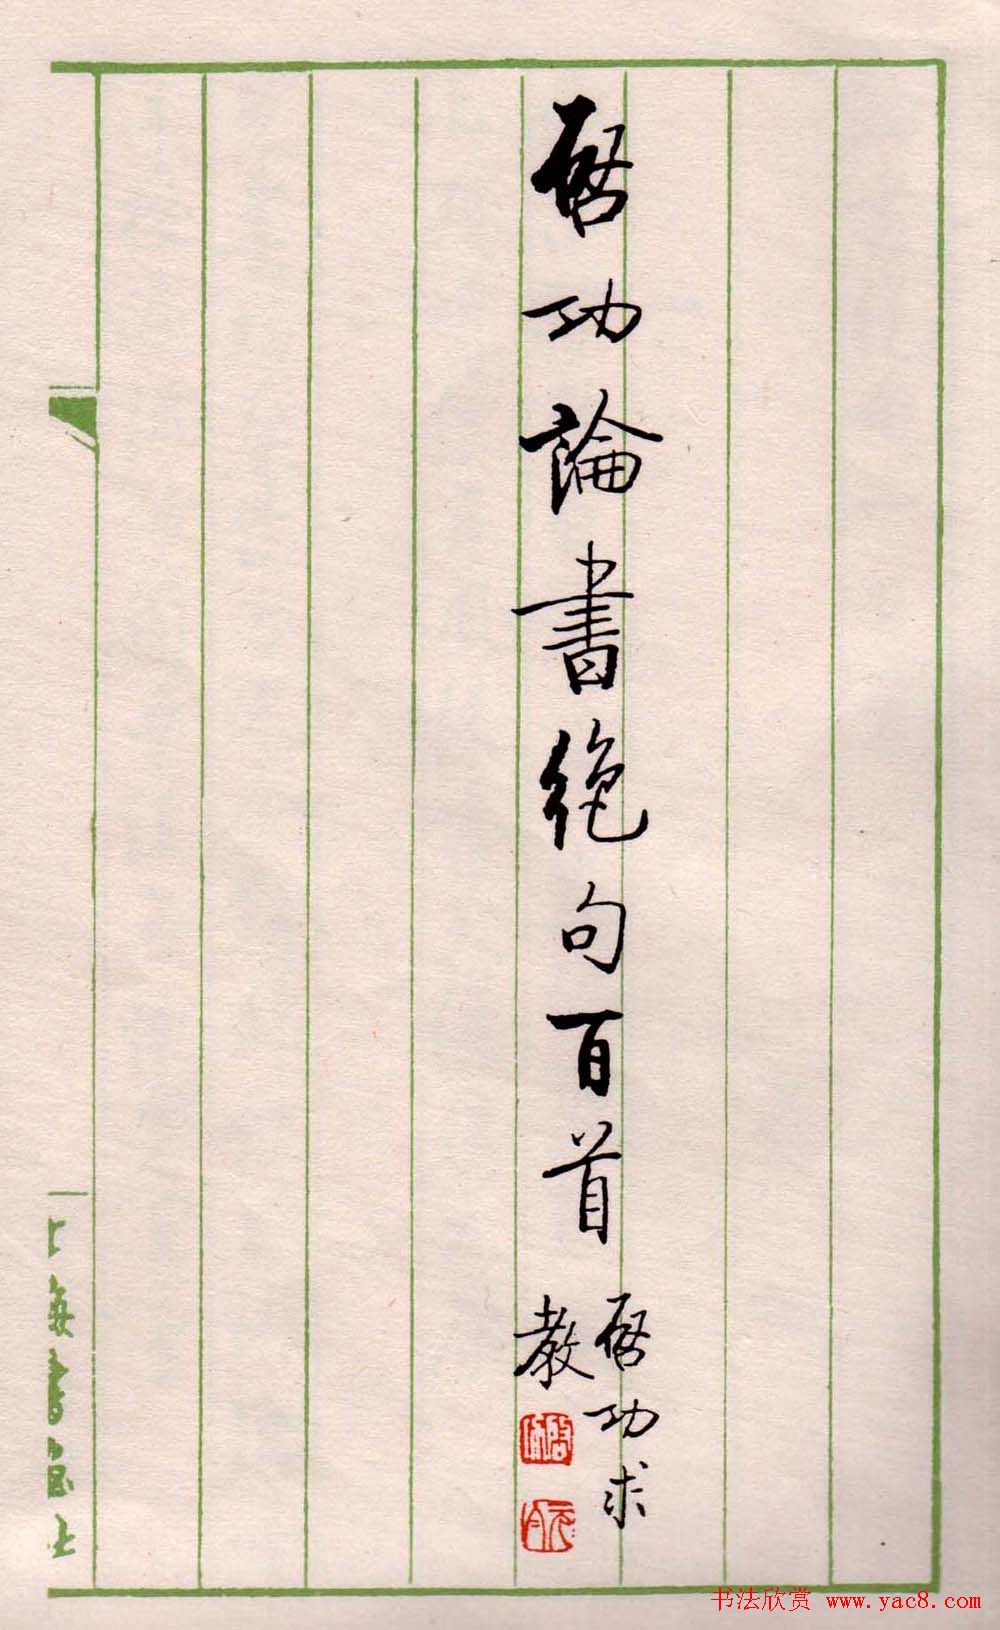 啓功論書絕句百首
啓功求
教
啓功
元白
上海書畫社
书法欣赏 www.yac8.com